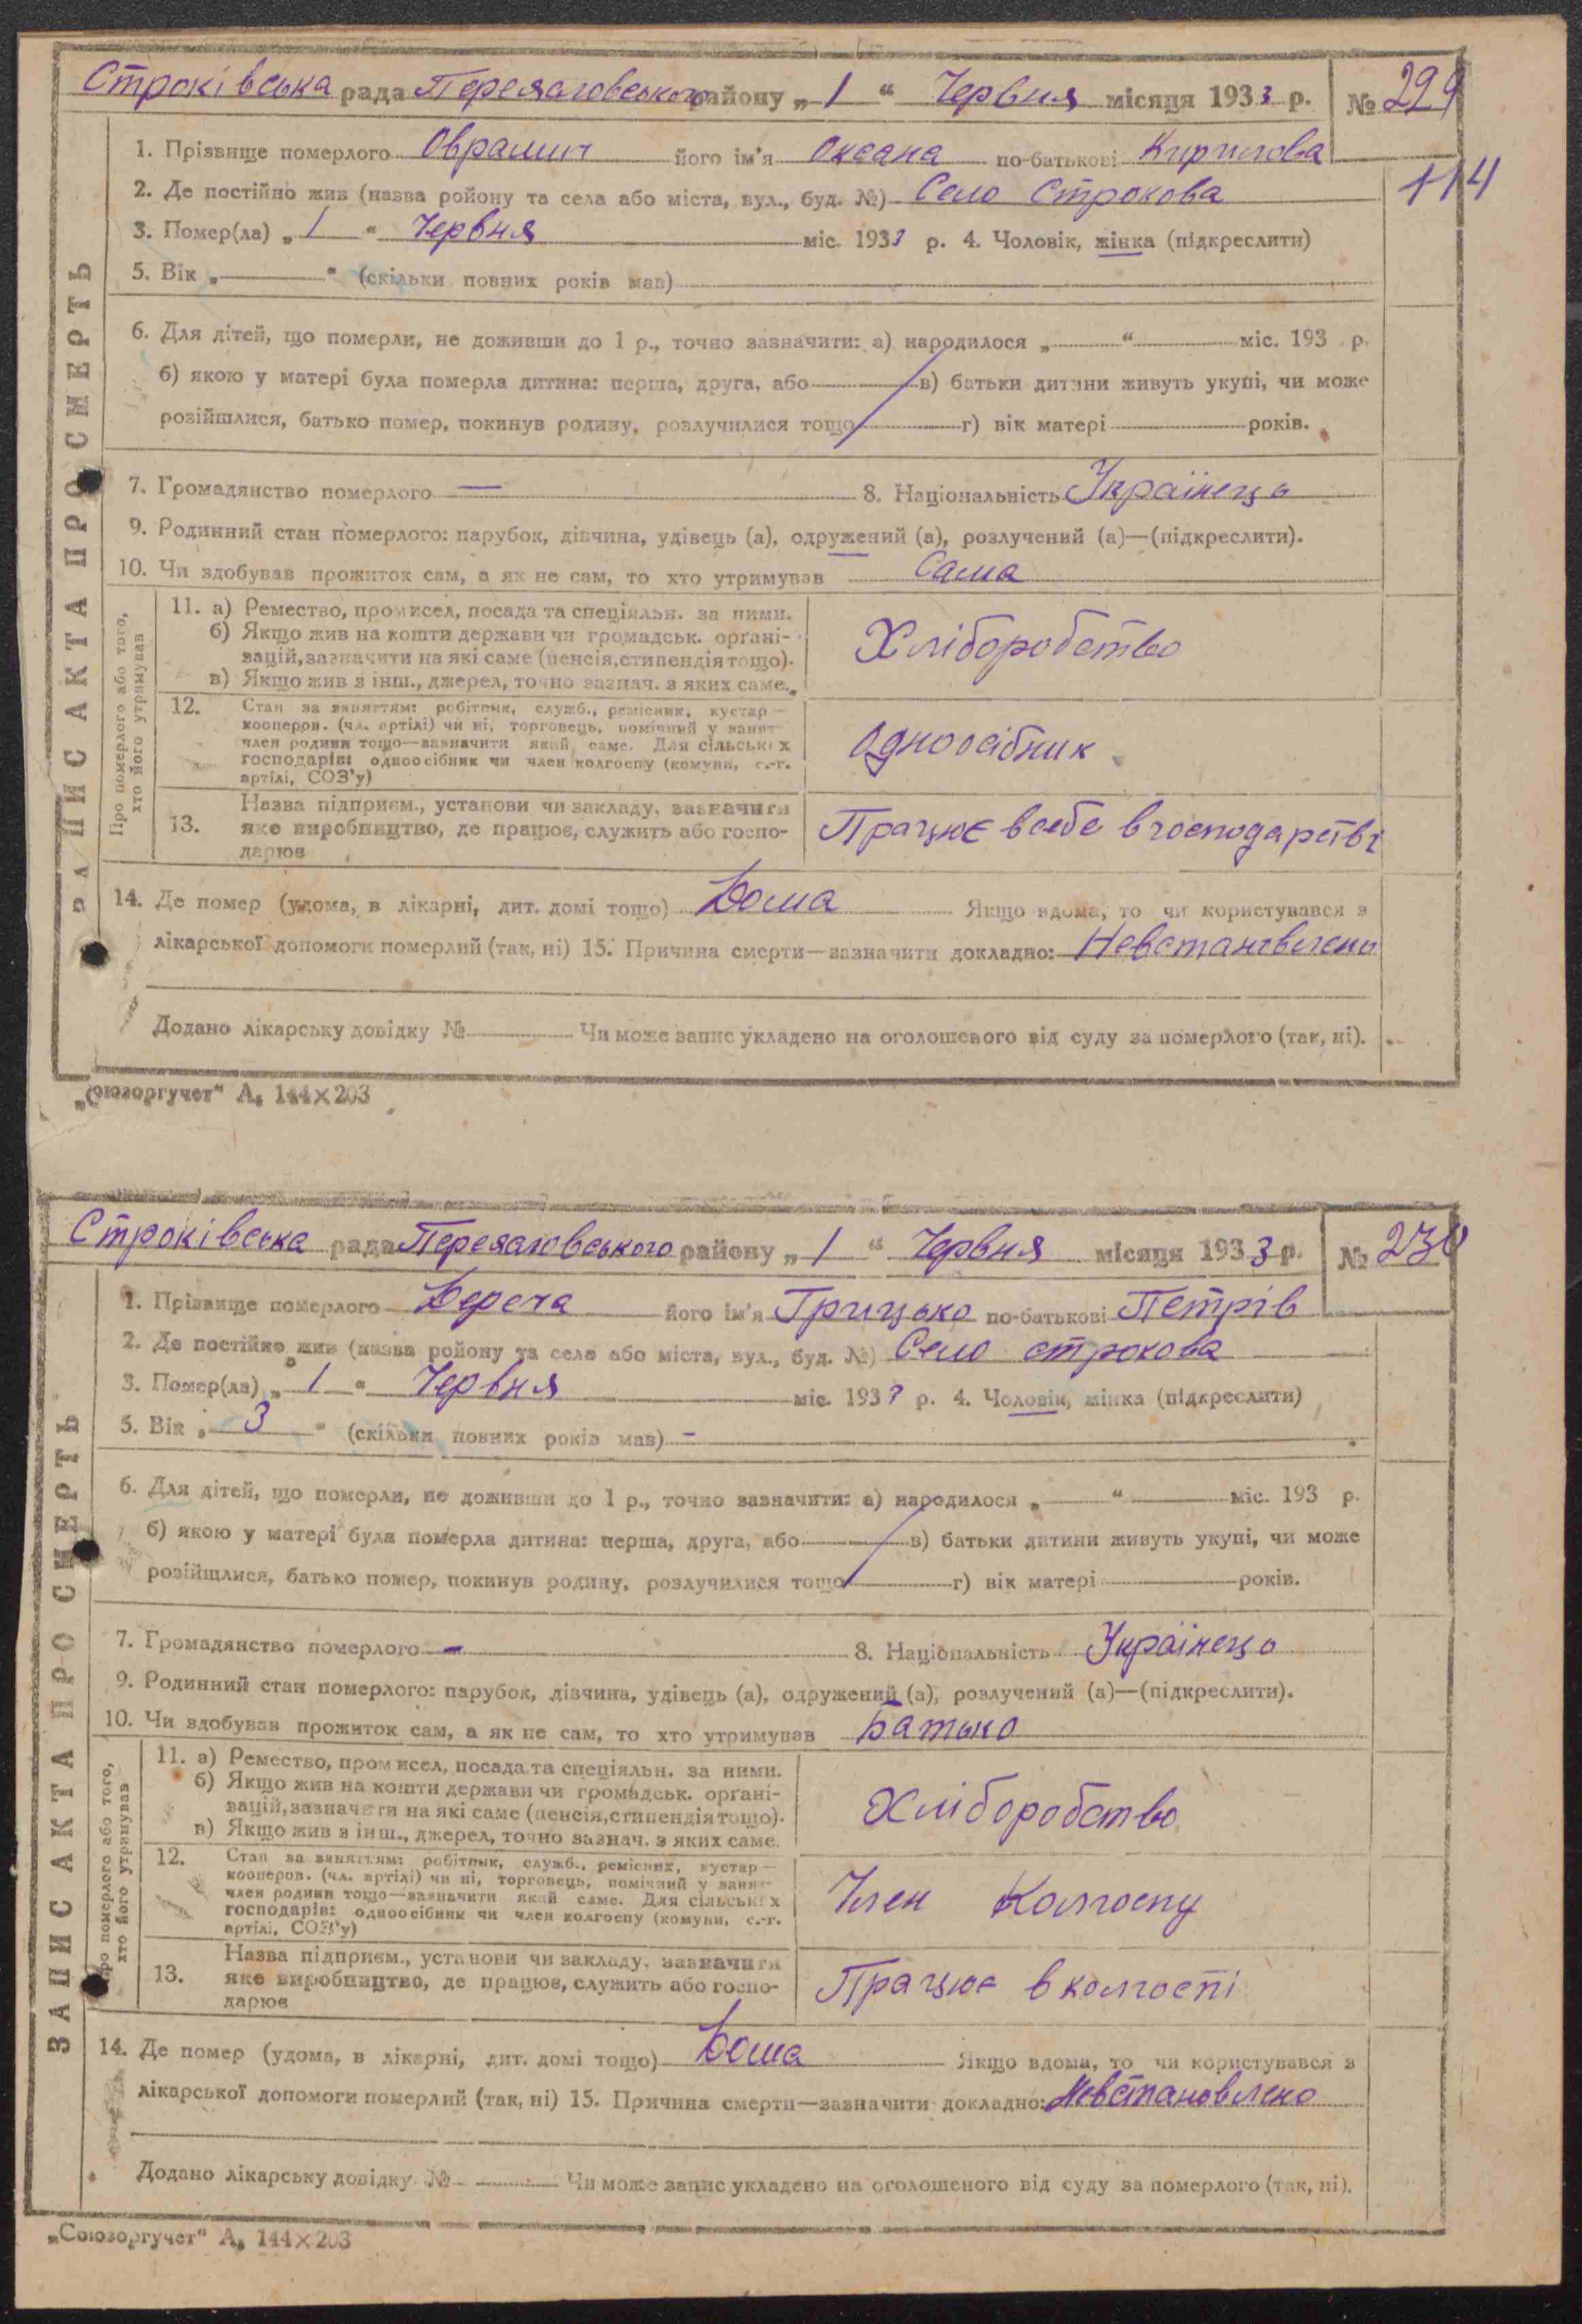 Строківська рада Переяславського району „ 1 “ Червня місяця 1933 р. № 229
114
1. Прізвище померлого Оврамич його ім'я Оксана по-батькові Кирилова
2. Де постійно жив (назва ройону та села або міста, вул., буд. №) Село Строкова
3. Помер(ла) „ 1 “ Червня міс. 1933 р. 4. Чоловік, жінка (підкреслити)
5. Вік „ “ (скільки повних років мав)
6. Для дітей, що померли, не доживши до 1 р., точно зазначити: а) народилося „ “ міс. 193 р.
б) якою у матері була померла дитина: перша, друга, або в) батьки дитини живуть укупі, чи може
розійшлися, батько помер, покинув родину, розлучилися тощо г) вік матері років.
7. Громадянство померлого — 8. Національність Українець
9. Родинний стан померлого: парубок, дівчина, удівець (а), одружений (а), розлучений (а)—(підкреслити).
10. Чи здобував прожиток сам, а як не сам, то хто утримував Сама
ЗАПИС АКТА ПРО СМЕРТЬ
Про померлого або того,
хто його утримував
11. а) Ремество, промисел, посада та спеціяльн. за ними.
б) Якщо жив на кошти держави чи громадськ. організацій, зазначити на які саме (пенсія, стипендія тощо).
в) Якщо жив з інш., джерел, точно зазнач. з яких саме.
Хліборобство
12. Стан за заняттям: робітник, служб., ремісник, кустар—
кооперов. (чл. артілі) чи ні, торговець, помічний у занят
член родини тощо—зазначити який саме. Для сільських
господарів: одноосібник чи член колгоспу (комуни, с.-г.
артілі, СОЗ'у)
Одноосібник
13. Назва підприєм., установи чи закладу, зазначити
яке виробництво, де працює, служить або госпо-
дарює
Працює в себе в господарстві
14. Де помер (удома, в лікарні, дит. домі тощо) Дома Якщо вдома, то чи користувався з
лікарської допомоги померлий (так, ні) 15. Причина смерти—зазначити докладно: Невстановлено
Додано лікарську довідку № Чи може запис укладено на оголошеного від суду за померлого (так, ні).
„Союзоргучет“ А₅ 144×203
Строківська рада Переяславського району „ 1 “ Червня місяця 1933 р. № 230
1. Прізвище померлого його ім'я Грицько по-батькові Петрів
2. Де постійно жив (назва ройону та села або міста, вул., буд. №) Село строкова
3. Помер(ла) „ 1 “ Червня міс. 1933 р. 4. Чоловік, жінка (підкреслити)
5. Вік „ 3 “ (скільки повних років мав) -
6. Для дітей, що померли, не доживши до 1 р., точно зазначити: а) народилося „ “ міс. 193 р.
б) якою у матері була померла дитина: перша, друга, або в) батьки дитини живуть укупі, чи може
розійшлися, батько помер, покинув родину, розлучилися тощо г) вік матері років.
7. Громадянство померлого - 8. Національність Українець
9. Родинний стан померлого: парубок, дівчина, удівець (а), одружений (а), розлучений (а)—(підкреслити).
10. Чи здобував прожиток сам, а як не сам, то хто утримував Батько
ЗАПИС АКТА ПРО СМЕРТЬ
Про померлого або того,
хто його утримував
11. а) Ремество, промисел, посада та спеціяльн. за ними.
б) Якщо жив на кошти держави чи громадськ. органі-
зацій, зазначити на які саме (пенсія, стипендія тощо).
в) Якщо жив з інш., джерел, точно зазнач. з яких саме.
Хліборобство
12. Стан за заняттям: робітник, служб., ремісник, кустар—
кооперов. (чл. артілі) чи ні, торговець, помічний у занят
член родини тощо—зазначити який саме. Для сільських
господарів: одноосібник чи член колгоспу (комуни, с.-г.
артілі, СОЗ'у)
Член Колгоспу
13. Назва підприєм., установи чи закладу, зазначити
яке виробництво, де працює, служить або госпо-
дарює
Працює в колгоспі
14. Де помер (удома, в лікарні, дит. домі тощо) Дома Якщо вдома, то чи користувався з
лікарської допомоги померлий (так, ні) 15. Причина смерти—зазначити докладно: Невстановлено
Додано лікарську довідку № Чи може запис укладено на оголошеного від суду за померлого (так, ні).
„Союзоргучет“ А₅ 144×203